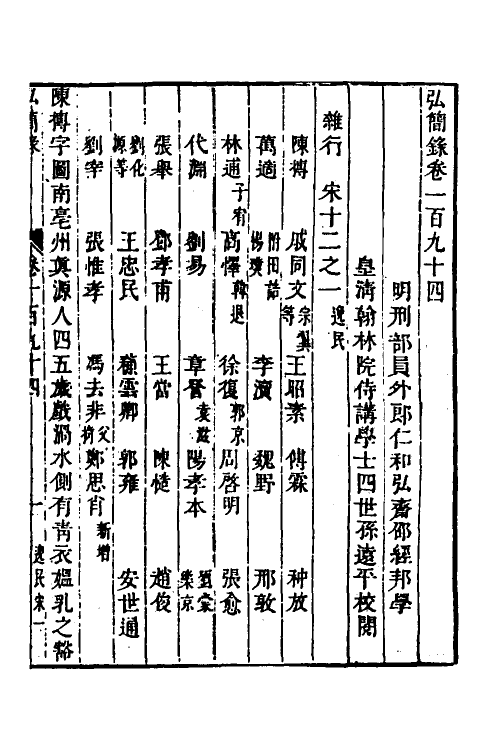 弘簡錄卷一百九十四
明刑部員外郎仁和弘齋邵經邦學
皇淸翰林院侍講學士四世孫遠平校閱
雜行 宋十二之一 逸民
陳摶 戚同文 宗翼等 王昭素 傅霖 种放
萬適 附田誥 楊璞 李瀆 魏野 邢敦
林逋 子宥 高懌 韓退 徐復 郭京 周啓明 張愈
代淵 劉易 章詧 陽孝本 劉棠 樂京
張舉 鄧孝甫 王當 陳慥 趙俊
劉化源等 王忠民 蘇雲卿 郭雍 安世通
劉宰 張惟孝 馮去非 父 鄭思肖 新增
陳摶字圖南亳州眞源人四五歲戲渦水側有靑衣媼乳之豁
弘簡錄 卷一百九十四 一 逸民宋一